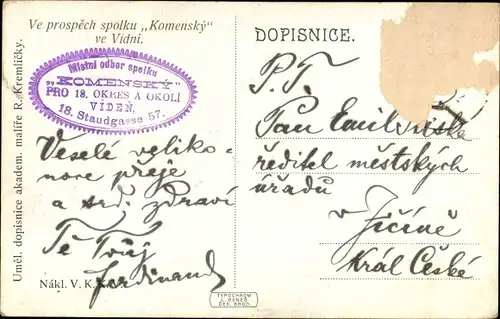 Ve prospěch spolku „Komenský"
ve Vídni.
Místní odbor spolku
„KOMENSKÝ"
PRO 18. OKRES A OKOLÍ
VÍDEŇ,
18. Staudgasse 57.
Veselé veliko-
noce přeje
a srd. zdraví
Tě Tvůj
Ferdinand
Nákl. V. K.
Uměl. dopisnice akadem. malíře R. Kremličky.
DOPISNICE.
P. T.
Pan Emil
ředitel městských
úřadů
v Jičíně
Král. České
TYPOCHROM
J. BENEŠ
ČES. BROD.